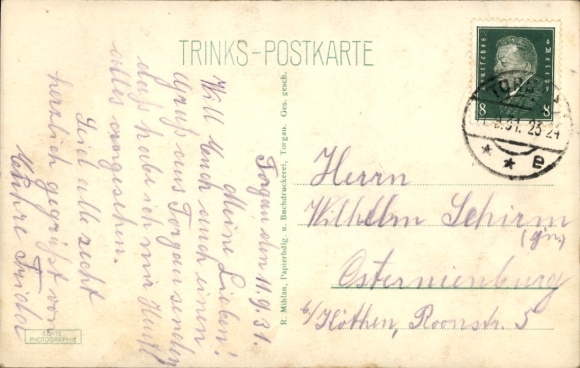 TRINKS-POSTKARTE
Torgau den 11.9.31.
Meine Lieben!
Will Euch auch einen
Gruß aus Torgau senden
das habe ich mir
alles angesehen.
Seid alle recht
herzlich gegrüßt von
Frida
R. Mihlan, Papierhdlg. u. Buchdruckerei, Torgau. Ges. gesch.
Deutsches Reich
8 8
TORGAU
.9.31. 23-24
* * e
Herrn
Wilhelm Schirm
(jun)
Osternienburg
b/Köthen, Roonstr. 5
ECHTE
PHOTOGRAPHIE